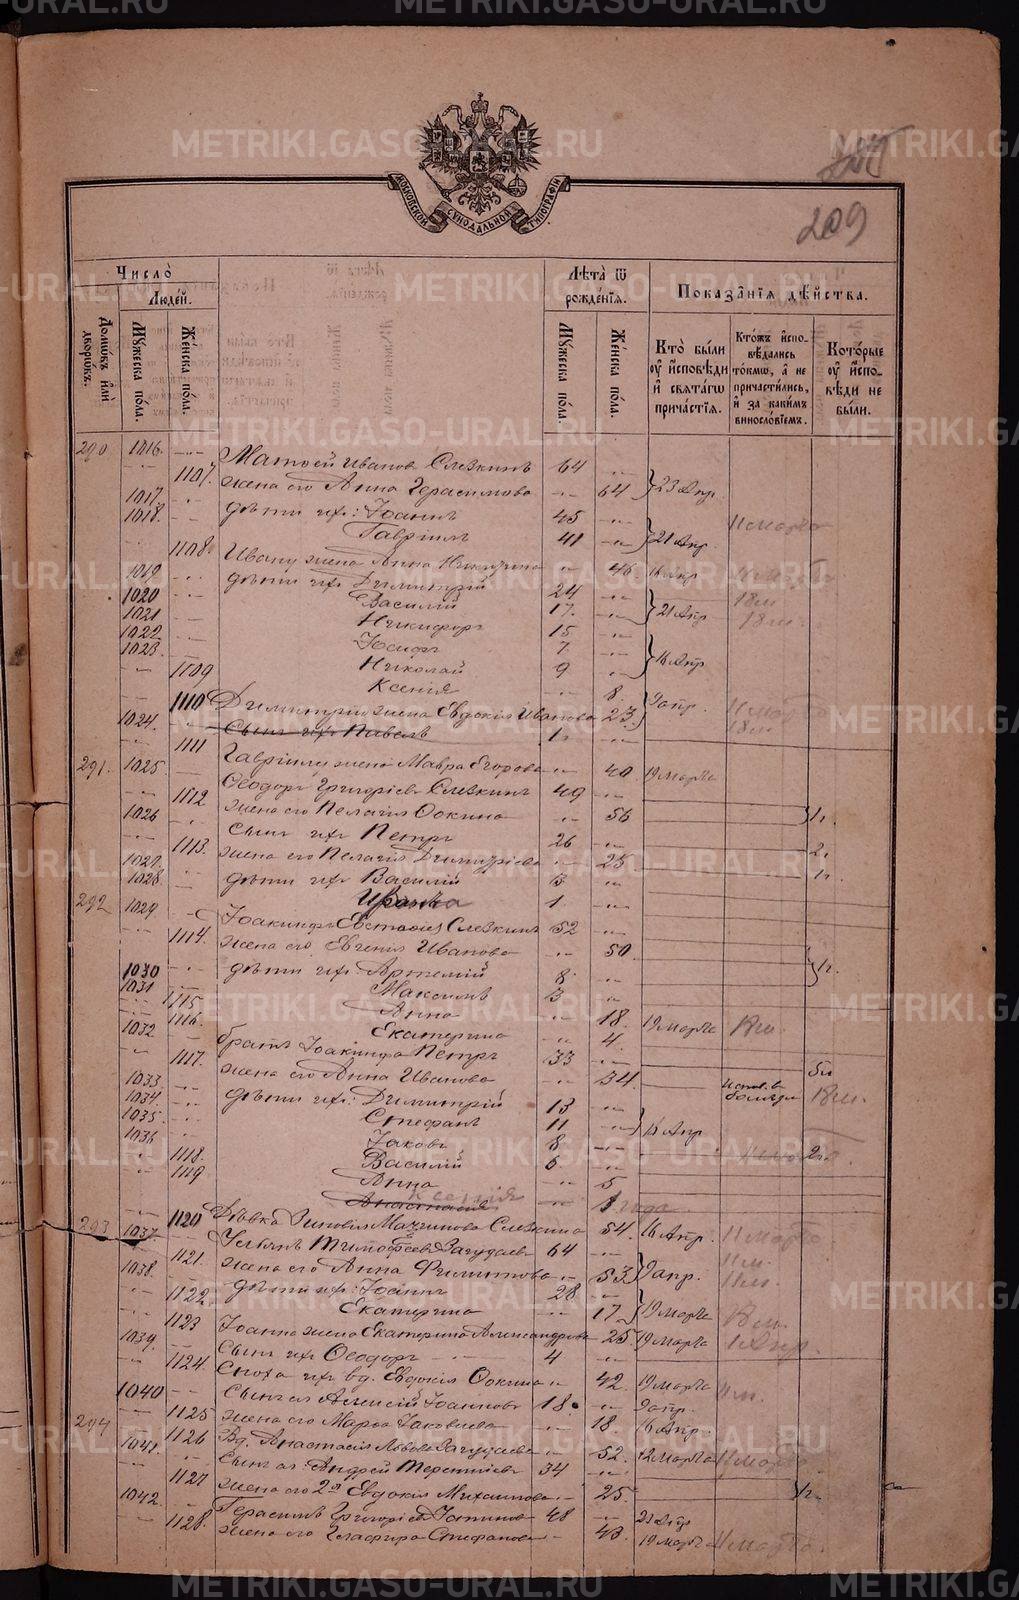 209
МОСКОВСКОЙ СУНОДАЛЬНОЙ ТИПОГРАФІИ
Число̀
Людей.
Домѡвъ и҆лѝ дворѡвъ.
Мꙋжеска по́ла.
Же́нска по́ла.
Лѣта̀ ѿ рожде́нїѧ.
Мꙋжеска по́ла.
Же́нска по́ла.
Показа̑нїѧ дѣ́йства.
Кто̀ бы́ли ᲂу҆ и҆сповѣди и҆ свѧта́гѡ прича́стїѧ.
Кто́жъ и҆спо- вѣдались то́кмѡ, а҆ не причасти́лись, и҆ за каки́мъ винословїемъ.
Кото́рые ᲂу҆ и҆спо- вѣди не бы́ли.
290 1016. Матѳей Ивановъ Слезкинъ 64
1107. жена его Анна Герасимова 64 23 Апр.
1017. дѣти ихъ: Іоаннъ 45
1018. Гавріилъ 41 21 Апр. 11 марта
1108. Ивану жена Анна Никитина 46 16 Апр
1019 дѣти ихъ Димитрій 24 18 м
1020 Василій 17. 21 Апр 18 м
1021 Никифоръ 15
1022 Іосифъ 7
1023. Николай 9 16 Апр
1109 Ксенія 8
1110 Димитрію жена Евдокія Иванова 23 9 апр.
1024. Сынъ ихъ Павелъ 1 18 м
1111 Гавріилу жена Мавра Егорова 40 19 марта
291. 1025. Ѳеодоръ Григоріевъ Слезкинъ 49
1112 жена его Пелагія Ѳокина 56 1 г.
1026 сынъ ихъ Петръ 26
1113. жена его Пелагія Димитріева 25 2 г.
1027. дѣти ихъ Василій 3 1 г.
1028. 1
292 1029 Іоакинфъ Евстафіевъ Слезкинъ 52
1114. жена его Евгенія Иванова 50 1 г.
1030 дѣти ихъ: Артемій 8
1031 Максимъ 3
1115 Анна 18. 19 марта
1116. Екатерина 4
1032 братъ Іоакинфа Петръ 33
1117. жена его Анна Иванова 34
1033. дѣти ихъ: Димитрій 13
1034. Стефанъ 11
1035. Іаковъ 8 15 Апр
1036 Василій 6
1118. Анна 5
1119 Анастасія Ксенія 1 года
1120 Дѣвка Зиновія Слезкина 54. 16 Апр. 11 марта
293 1037. Тимофеевъ Загудаевъ 64 11 м.
1121. жена его Анна Филиппова 53 9 апр. 11 м.
1038. дѣти ихъ: Іоаннъ 28
1122. Екатерина 17 19 марта
1123 Іоанна жена Екатерина Александрова 25 19 марта 1 Апр.
1039. Сынъ ихъ Ѳеодоръ 4
1124. Сноха ихъ вд. Евдокія Ѳокина 42. 19 марта
1040 Сынъ ея Алексій Іоанновъ 18. 9 апр.
1125 жена его Марѳа Іаковлева 18. 16 Апр.
294 1126 Вд. Анастасія Львова Загудаева 52. 12 марта 11 марта
1041. Сынъ ея Андрей Терентіевъ 34
1127 жена его 2я Евдокія Михаилова 25. 1 г.
1042. Герасимъ Григоріевъ 48 21 Апр
1128. жена его Глафира Стефанова 43. 19 марта 11 марта.
METRIKI.GASO-URAL.RU